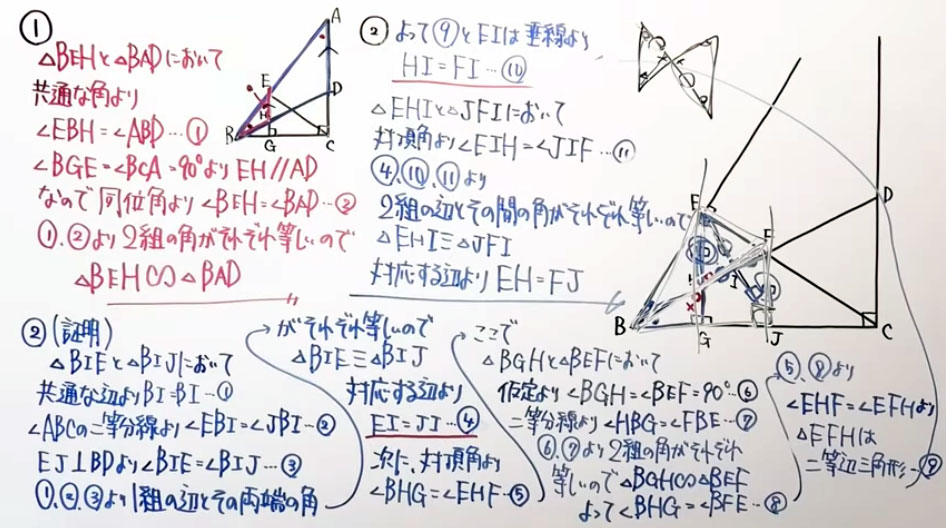 ①
△BEHと△BADにおいて
共通な角より
∠EBH=∠ABD…①
∠BGE=∠BCA=90°より EH//AD
なので同位角より∠BEH=∠BAD…②
①、②より2組の角がそれぞれ等しいので
△BEH∽△BAD
A
E
D
H
B
G
C
② よって⑨とEIは垂線より
HI=FI…⑩
△EHIと△JFIにおいて
対頂角より∠EIH=∠JIF…⑪
④、⑩、⑪より
2組の辺とその間の角がそれぞれ等しいので
△EHI≡△JFI
対応する辺よりEH=FJ
D
E
F
H
I
B
G
J
C
②(証明)
△BIEと△BIJにおいて
共通な辺よりBI=BI…①
∠ABCの二等分線より∠EBI=∠JBI…②
EJ⊥BDより∠BIE=∠BIJ…③
①、②、③より1組の辺とその両端の角
がそれぞれ等しいので
△BIE≡△BIJ
対応する辺より
EI=JI…④
次に、対頂角より
∠BHG=∠EHF…⑤
ここで
△BGHと△BEFにおいて
仮定より∠BGH=∠BEF=90°…⑥
二等分線より∠HBG=∠FBE…⑦
⑥、⑦より2組の角がそれぞれ
等しいので△BGH∽△BEF
よって∠BHG=∠BFE…⑧
⑤、⑧より
∠EHF=∠EFHより
△EFHは
二等辺三角形…⑨